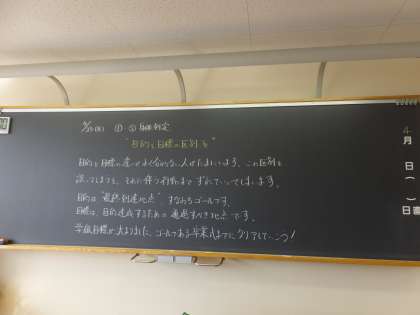 "目的と目標の区別を"
目的と目標の違いがよく分からない人がたまにいます。この区別を
誤ってしまうと、それに伴う行動まですれていってしまいます。
目的は"最終到達地点"すなわちゴールです。
目標は、目的達成するために通過すべき地点です。
学級目標が決まりました。ゴールである卒業式までにクリアしていこう!
4
月
日
(
)
日直